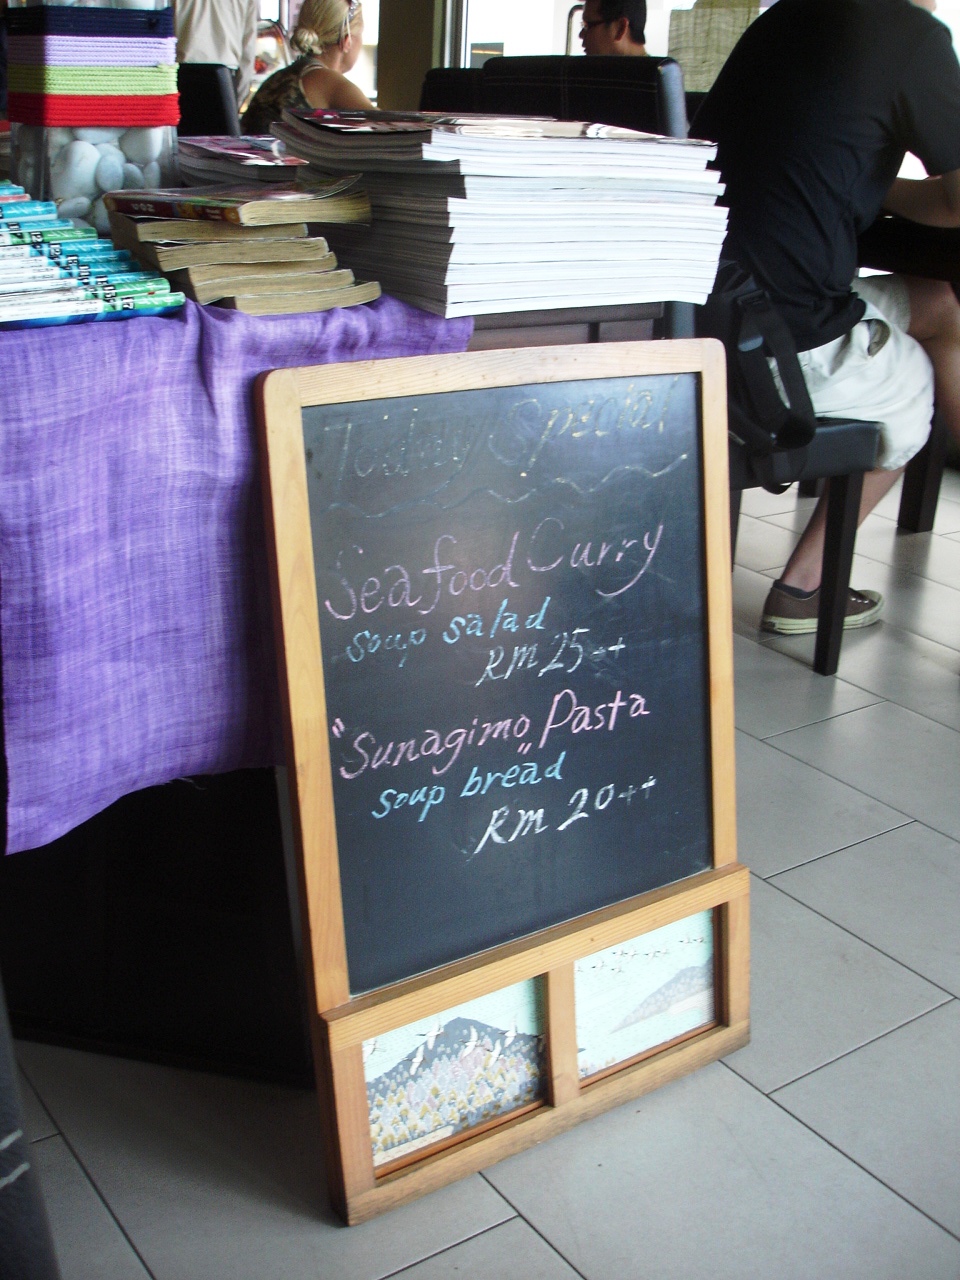 Today Special
Seafood Curry
soup salad
RM 25++
"Sunagimo" Pasta
soup bread
RM 20++